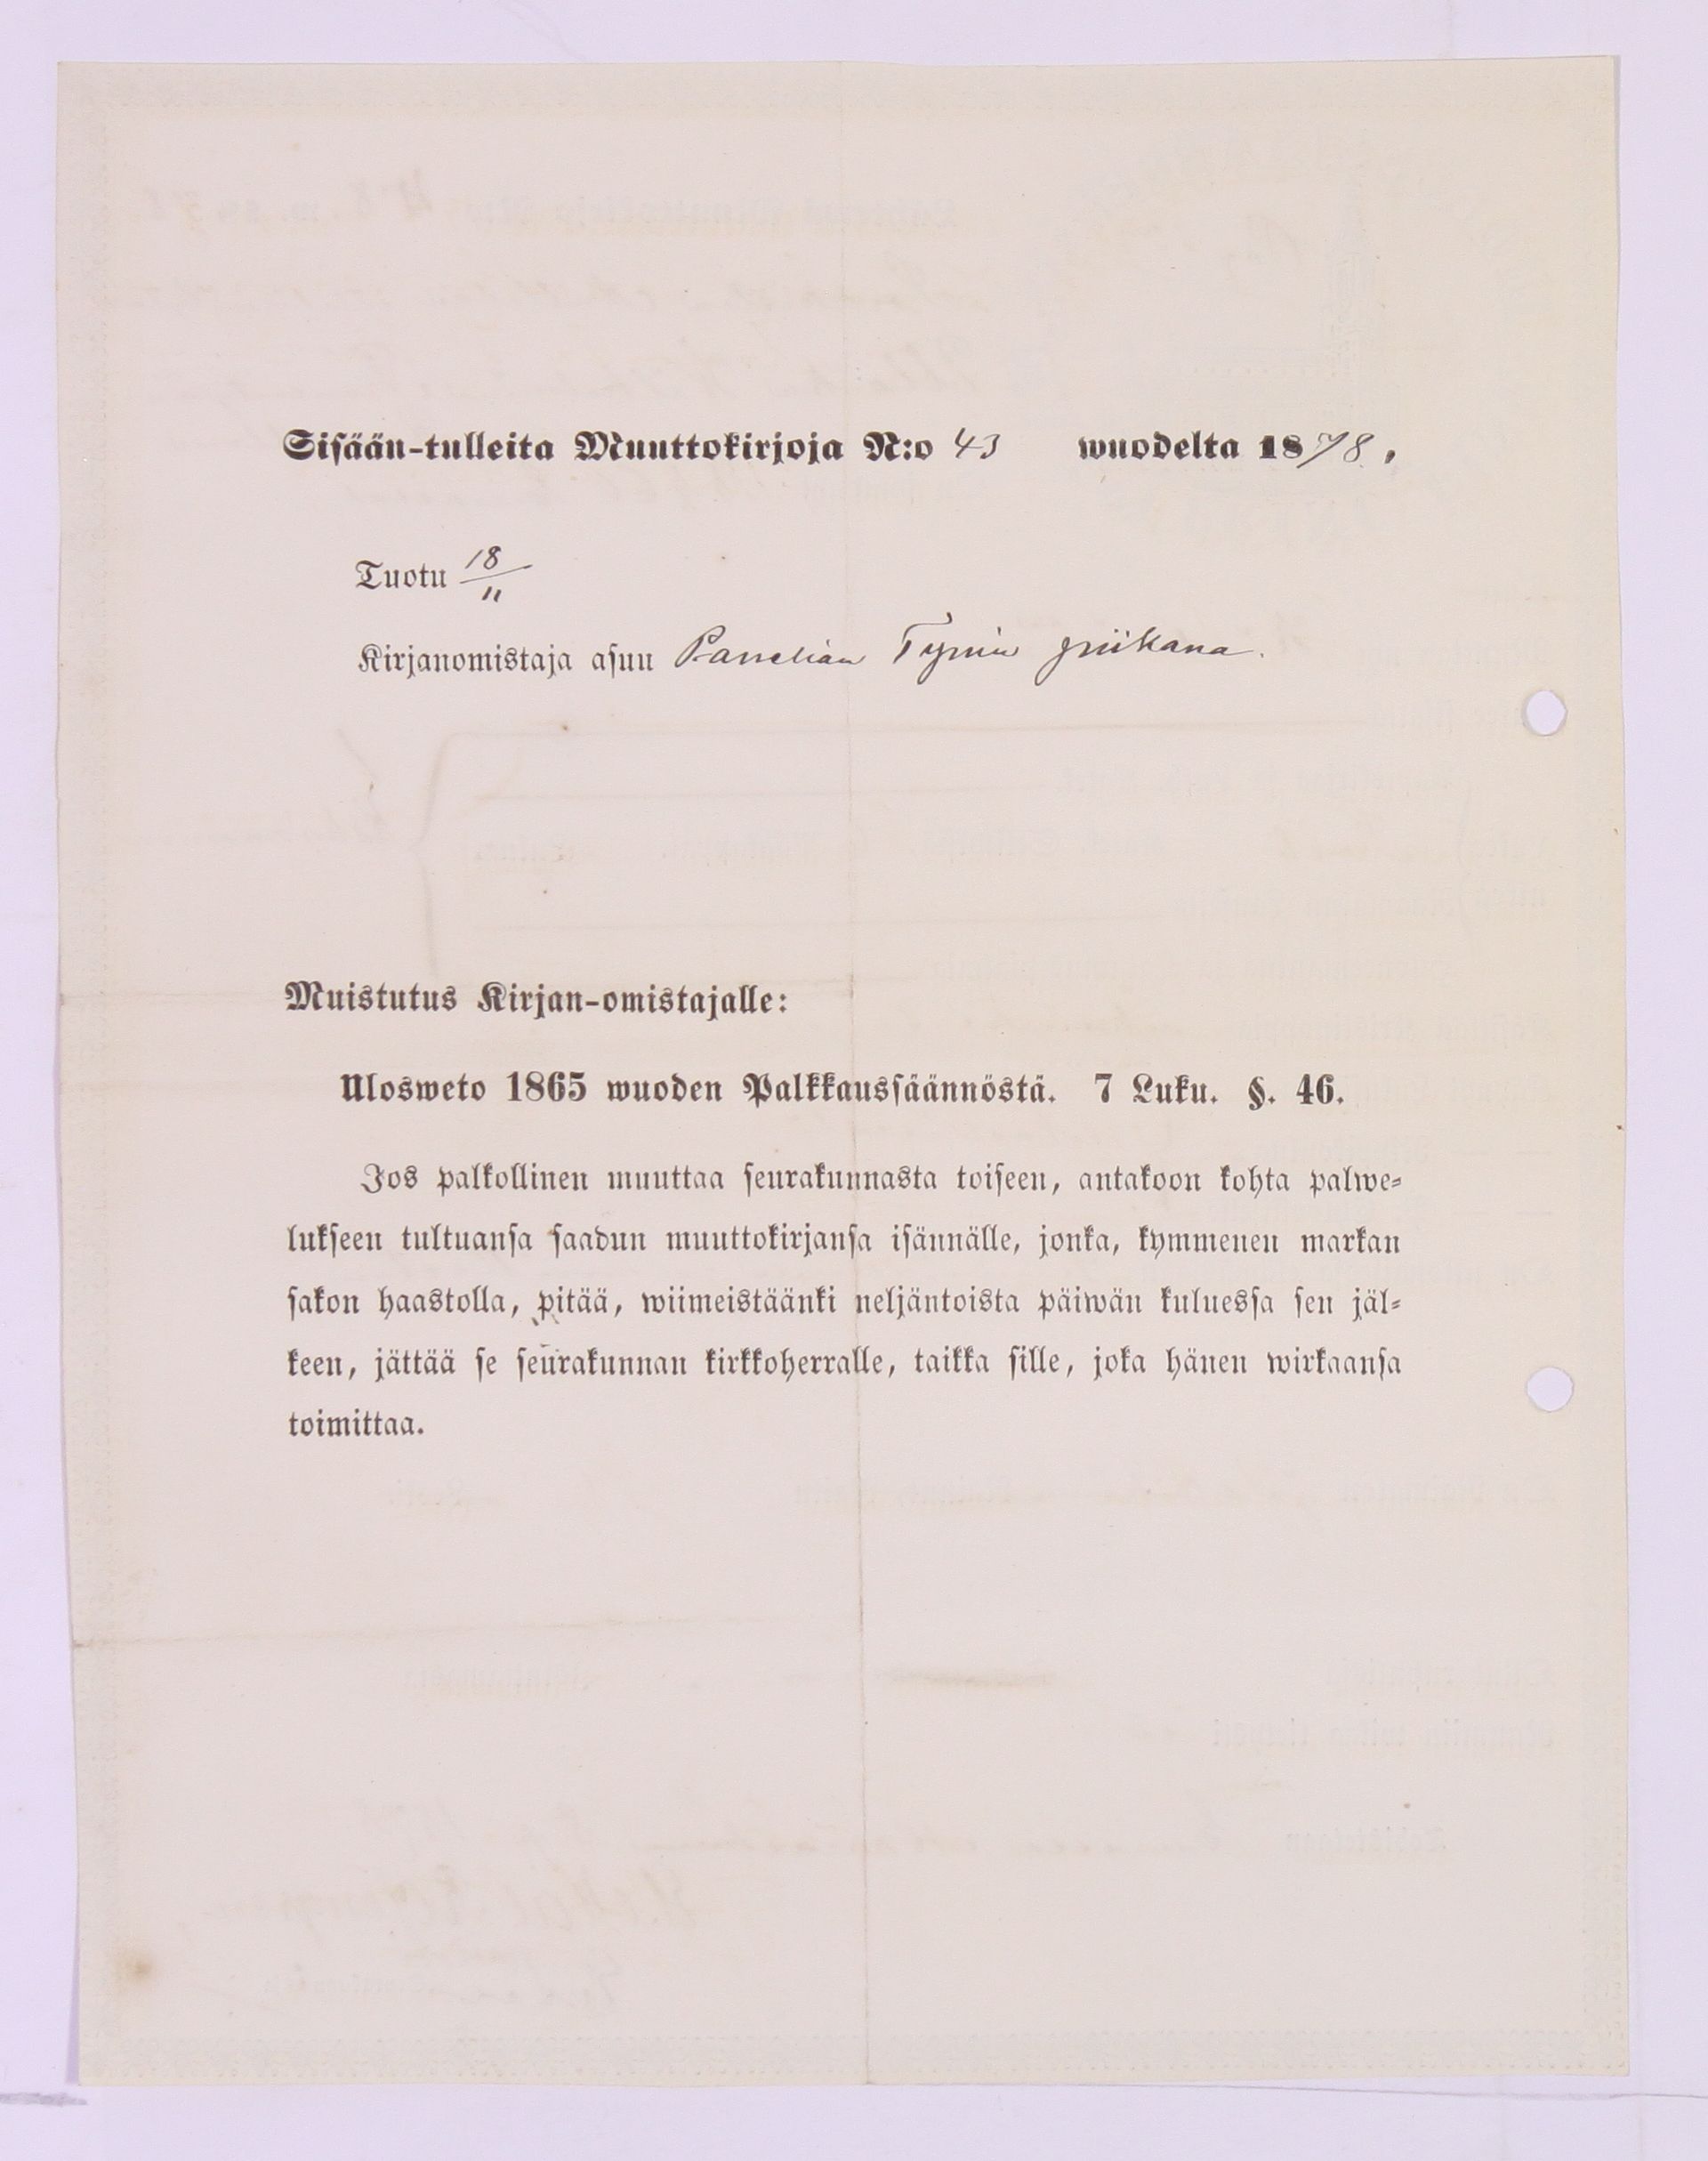 Sisään-tulleita Muuttokirjoja N:o 43 wuodelta 1878,
Tuotu 18/11
Kirjanomistaja asuu Panelian Tymin piikana.
Muistutus Kirjan-omistajalle:
Ulosweto 1865 wuoden Palkkaussäännöstä. 7 Luku. §. 46.
Jos palkollinen muuttaa seurakunnasta toiseen, antakoon kohta palwe-
lukseen tultuansa saadun muuttokirjansa isännälle, jonka, kymmenen markan
sakon haastolla, pitää, wiimeistäänki neljäntoista päiwän kuluessa sen jäl-
keen, jättää se seurakunnan kirkkoherralle, taikka sille, joka hänen wirkaansa
toimittaa.